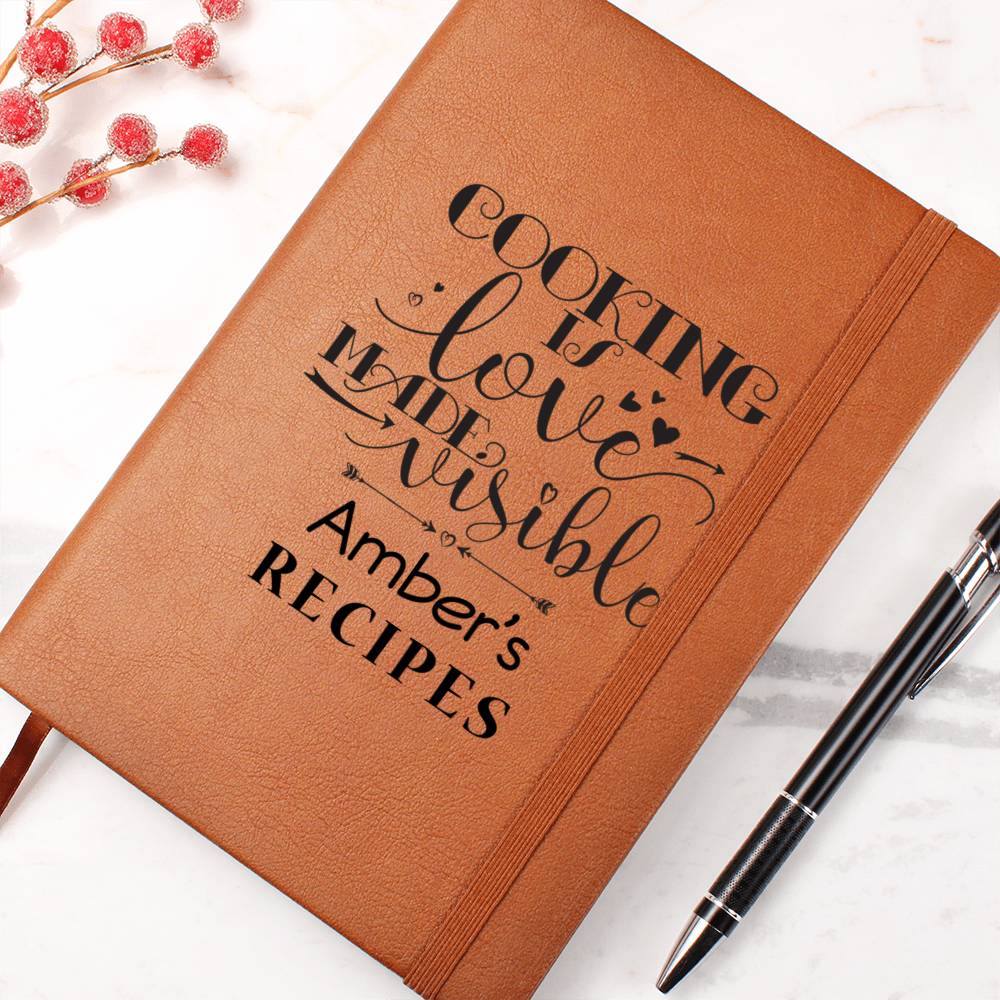 COOKING
IS
love
MADE
visible
Amber's
RECIPES